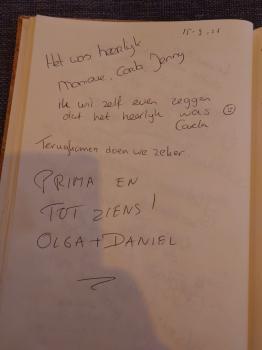 15-9-21
Het was heerlijk
Monique, Carla, Jenny
ik wil zelf even zeggen
dat het heerlijk was
Carla
Terugkomen doen we zeker.
PRIMA EN
TOT ZIENS!
OLGA + DANIEL